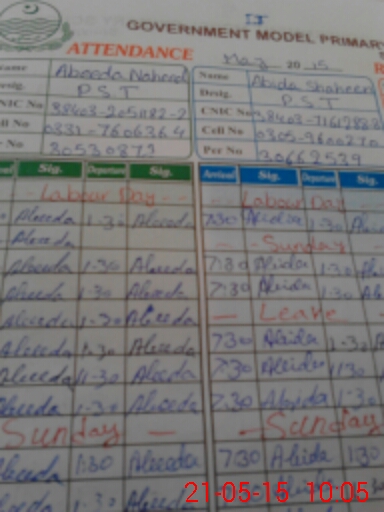 IJ
GOVERNMENT MODEL PRIMAR
ATTENDANCE
May 2015
Name Abeeda Naheed
Name Abida Shaheen
Desig. P S T
Desig. P S T
CNIC No 38403-2051182-2
CNIC No 38403-7161288
Cell No 0331-7606364
Cell No 0305-9600270
No 30530879
Per No 30662539
Sig. Departure Sig.
Arrival Sig. Departure Sig.
Labour Day
Labour Day
Abeeda 1-30 Abeeda
7:30 Abida 1.30
Abeeda
Sunday
Abeeda 1-30 Abeeda
7:30 Abida 1.30
Abeeda 1.30 Abeeda
7:30 Abida 1.30
Abeeda 1-30 Abeeda
Leave
Abeeda 1.30 Abeeda
7:30 Abida 1.30
Abeeda 1-30 Abeeda
7:30 Abida 1:30
Abeeda 1-30 Abeeda
7.30 Abida 1:30
Sunday
Sunday
Abeeda 1:30 Abeeda
7:30 Abida 1:30
Abeeda 1.30 Abeeda
21-05-15 10:05